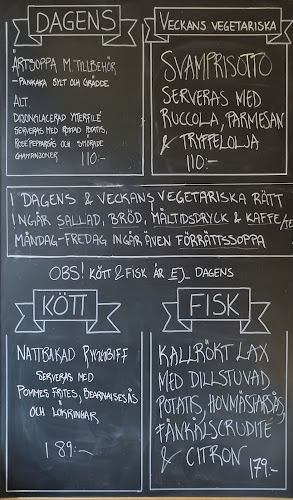 DAGENS
ÄRTSOPPA M. TILLBEHÖR
- PANKAKA SYLT OCH GRÄDDE
ALT.
DIJONGLACERAD YTTERFILÉ
SERVERAS MED ROSTAD POTATIS,
ROSÉPEPPARSÅS OCH SMÖRADE
CHAMPINJONER
110:-
VECKANS VEGETARISKA
SVAMPRISOTTO
SERVERAS MED
RUCCOLA, PARMESAN
& TRYFFELOLJA
110:-
I DAGENS & VECKANS VEGETARISKA RÄTT
INGÅR SALLAD, BRÖD, MÅLTIDSDRYCK & KAFFE/TE
MÅNDAG-FREDAG INGÅR ÄVEN FÖRRÄTTSSOPPA
OBS! KÖTT & FISK ÄR EJ DAGENS
KÖTT
NATTBAKAD RYGGBIFF
SERVERAS MED
POMMES FRITES, BEARNAISESÅS
OCH LÖKRINGAR
189:-
FISK
KALLRÖKT LAX
MED DILLSTUVAD
POTATIS, HOVMÄSTARSÅS,
FÄNKÅLSCRUDITÉ
& CITRON
179:-